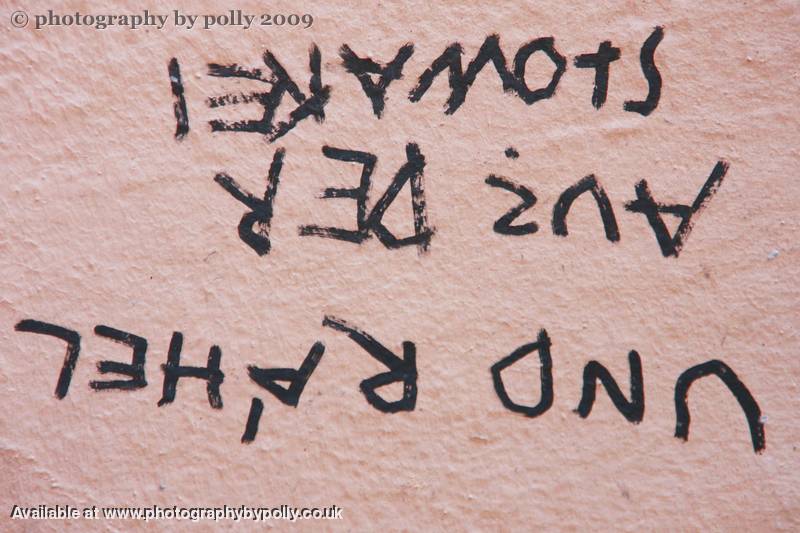 © photography by polly 2009
UND RAHEL
AUS DER
STOWAREI
Available at www.photographybypolly.co.uk